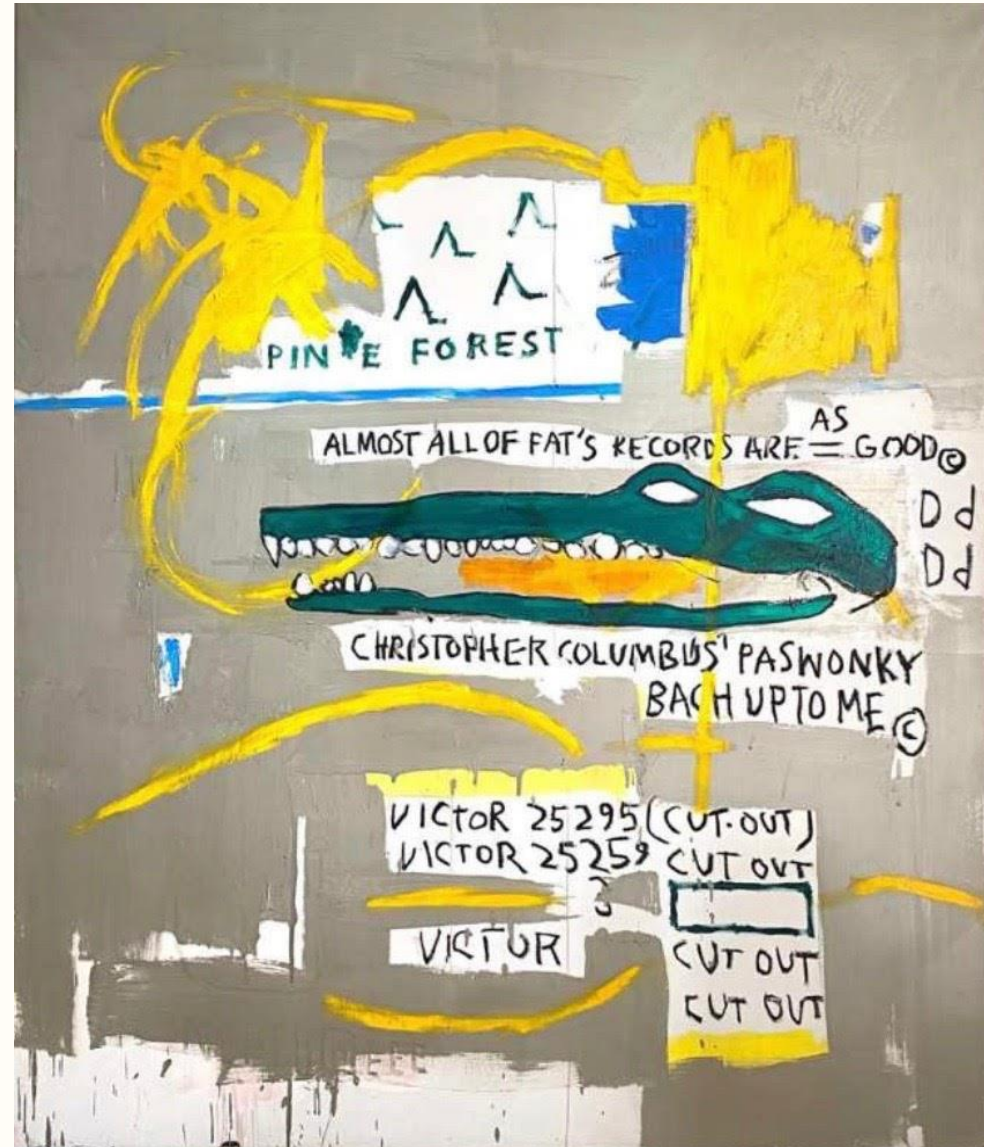 PINE FOREST
AS
ALMOST ALL OF FAT'S RECORDS ARE = GOOD©
D d
D d
CHRISTOPHER COLUMBUS' PASWONKY
BACH UP TO ME ©
VICTOR 25295 (CUT-OUT)
VICTOR 25259 CUT OUT
VICTOR
CUT OUT
CUT OUT